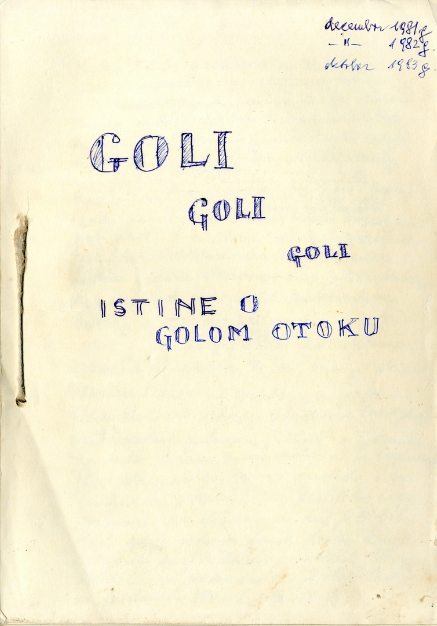 decembar 1981g
–"– 1982g.
oktobar 1983g.
GOLI
GOLI
GOLI
ISTINE O
GOLOM OTOKU